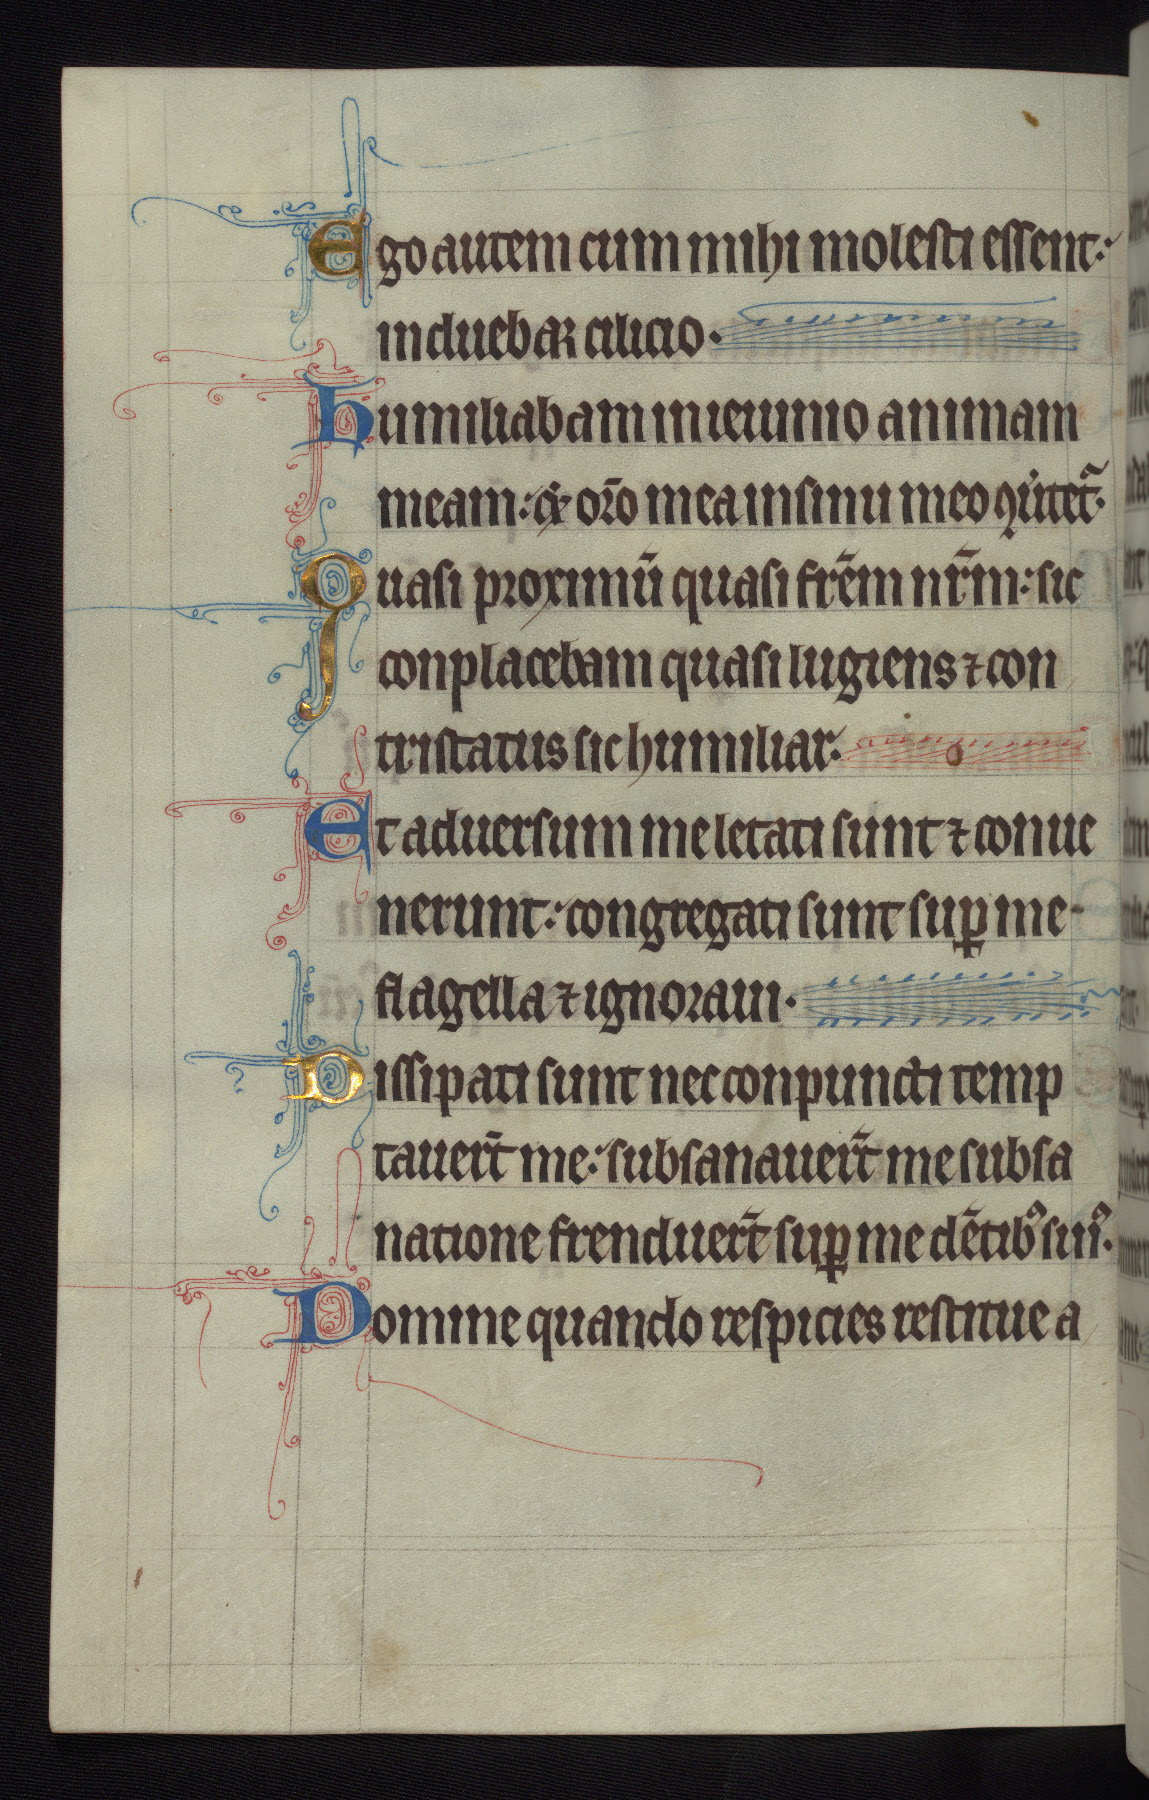 Ego autem cum mihi molesti essent:
induebar cilicio.
Humiliabam in ieiunio animam
meam: ⁊ or̄o mea in sinu meo ɋ̇ũtet᷑.
Quasi proximū quasi fr̄em nr̄m: sic
conplacebam quasi lugiens ⁊ con
tristatus sic humiliar.
Et aduersum me letati sunt ⁊ conue
nerunt: congregati sunt suꝑ me
flagella ⁊ ignoraui.
Dissipati sunt nec conpuncti temp
tauer̄t me: subsanauer̄t me subsa
natione frenduer̄t suꝑ me dētibꝰ suiꝰ.
Domine quando respicies restitue a